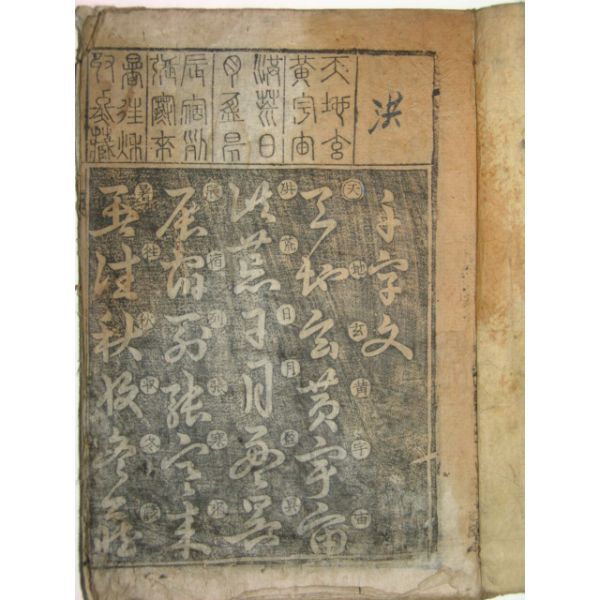 洪
天地玄
黃宇宙
洪荒日
月盈昃
辰宿列
張寒來
暑往秋
收冬藏
千字文
天地玄黃宇宙
天地玄黃宇宙
洪荒日月盈昃
洪荒日月盈昃
辰宿列張寒來
辰宿列張寒來
暑往秋收冬藏
暑往秋收冬藏